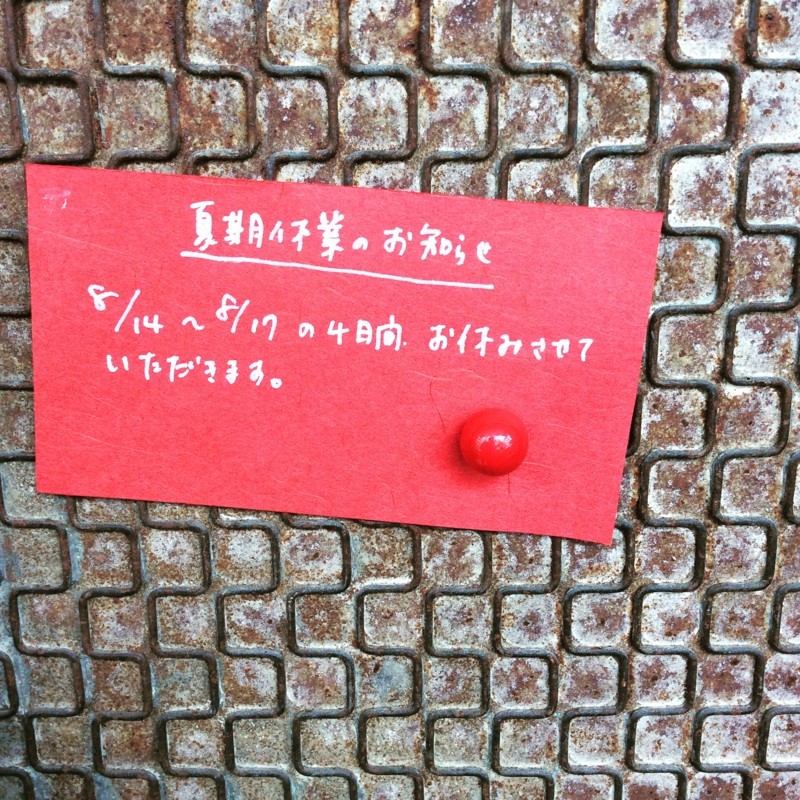 夏期休業のお知らせ
8/14～8/17の4日間、お休みさせて
いただきます。